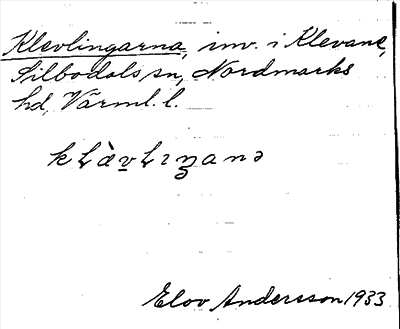 Klevlingarna, inv. i Klevane,
Silbodals sn, Nordmarks
hd, Värml. l.
kⱡàv̲ⱡıŋanə
Elov Andersson 1933